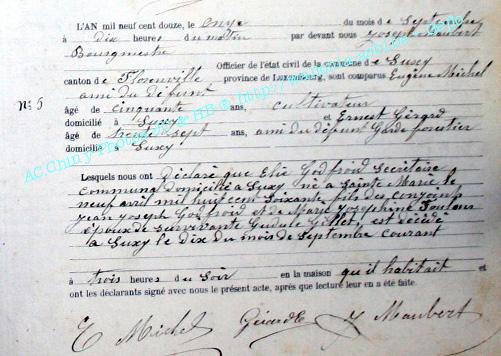 L'AN mil neuf cent douze, le onze du mois de Septembre
à dix heures du matin par devant nous Joseph Maubert
Bourgmestre
Officier de l'état civil de la commune de Suxy
canton de Florenville province de Luxembourg, sont comparus Eugène Michel
ami du défunt
N° 5
âgé de cinquante ans, cultivateur
domicilié à Suxy et Ernest Gérard
âgé de trente sept ans, ami du défunt Garde forestier
domicilié à Suxy
Lesquels nous ont Déclaré que Elie Godfroid Secrétaire
communal domicilié à Suxy né à Sainte Marie le
neuf avril mil huit cent soixante fils des conjoints
Jean Joseph Godfroid et de Marie Joséphine
époux de survivante Gudule Gillet, est décédé
à Suxy le dix du mois de Septembre courant
à trois heures du soir en la maison qu'il habitait et
ont les déclarants signé avec nous le présent acte, après que lecture leur en a été faite.
E Michel Gérard E J Maubert
AC Chiny Photographie HB ©